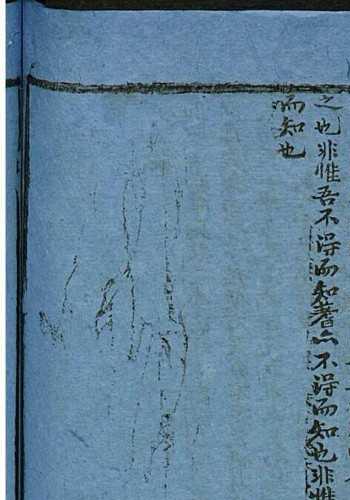 之也非惟吾不得而知蓍亦不得而知也非惟
而知也